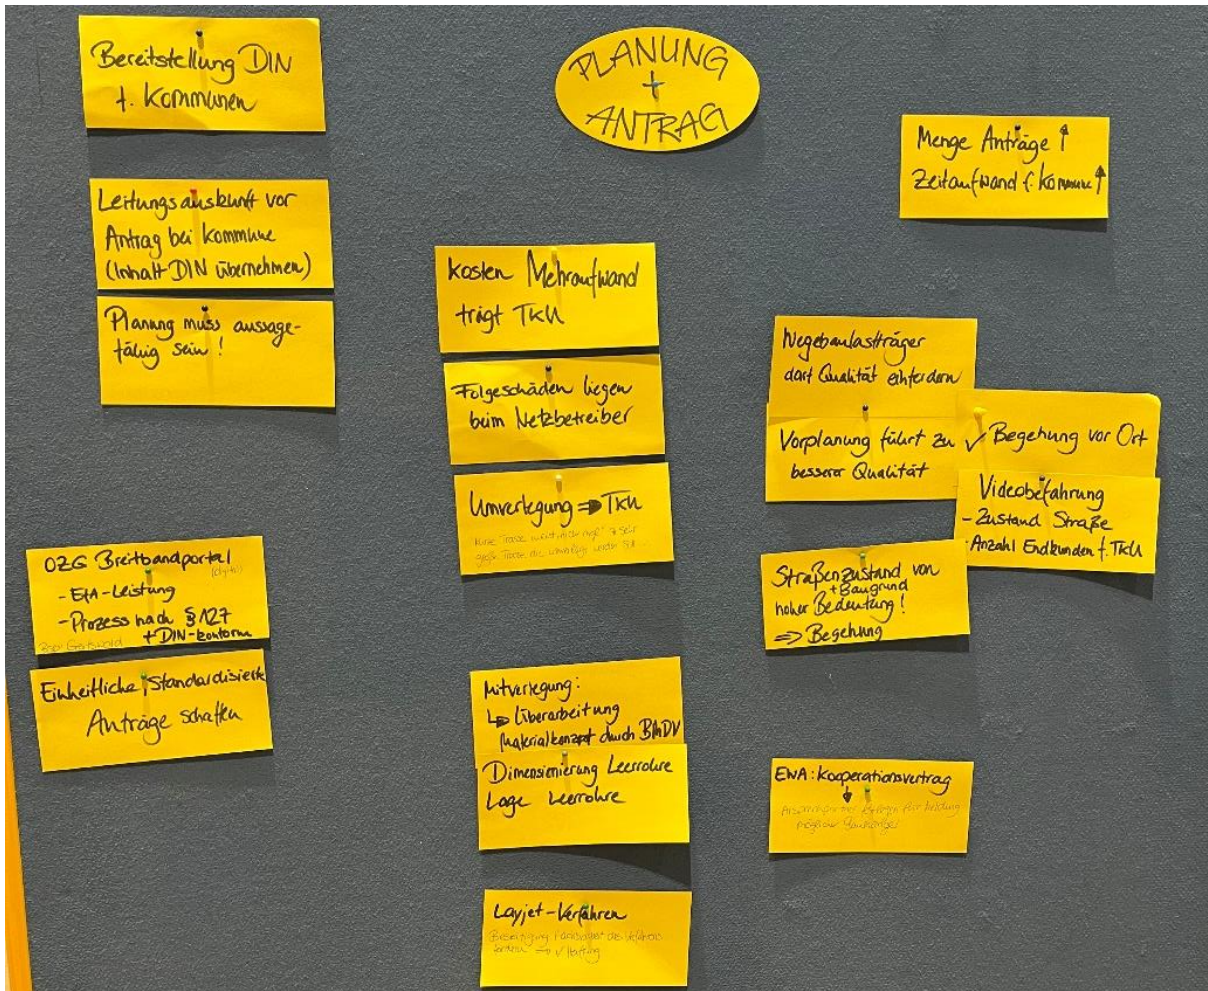 PLANUNG
+
ANTRAG
Bereitstellung DIN
f. Kommunen
Leitungsauskunft vor
Antrag bei Kommune
(Inhalt DIN übernehmen)
Planung muss aussage-
fähig sein!
OZG Breitbandportal
(digital)
- EfA-Leistung
- Prozess nach §127
+ DIN-konform
Bsp.
Einheitliche, Standardisierte
Anträge schaffen
Kosten Mehraufwand
trägt TKU
Folgeschäden liegen
beim Netzbetreiber
Umverlegung ⇒ TKU
Trasse
große Trasse die
Mitverlegung:
↳ Überarbeitung
Materialkonzept durch BMDV
Dimensionierung Leerrohre
Lage Leerrohre
Layjet-Verfahren
Beseitigung
fordern ⇒
Menge Anträge ↑
Zeitaufwand f. Kommune ↑
Wegebaulastträger
darf Qualität einfordern
Vorplanung führt zu
besserer Qualität
✓ Begehung vor Ort
Videobefahrung
- Zustand Straße
- Anzahl Endkunden f. TKU
Straßenzustand von
+ Baugrund
hoher Bedeutung!
⇒ Begehung
ENA: Kooperationsvertrag
↓
Ansprechpartner
möglicher Baumängel